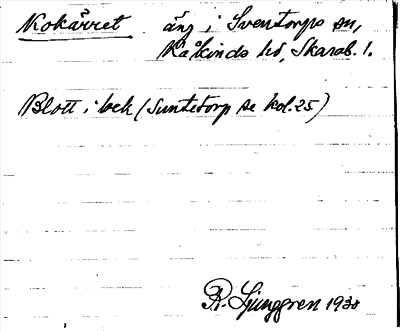 Nokärret äng i Sventorps sn,
Kåkinds hd, Skarab. l.
Blott i bek (Suntetorp se kol. 25)
R. Ljunggren 1930